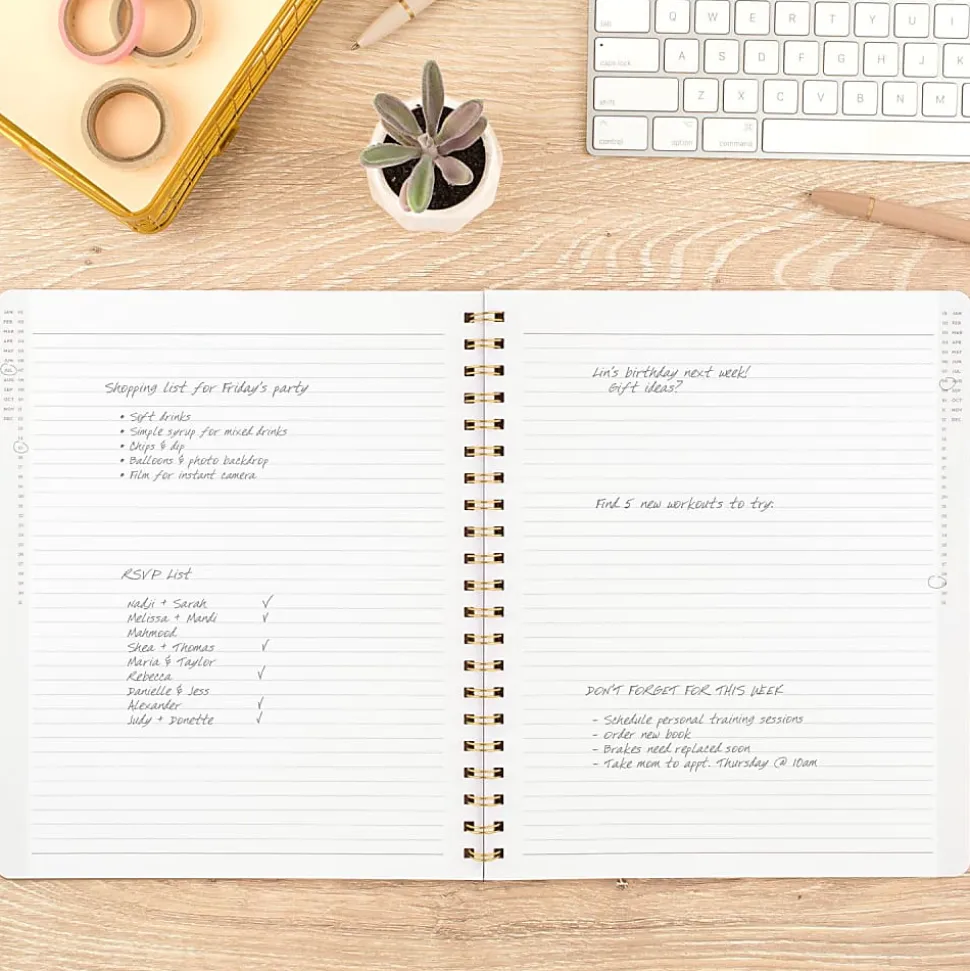 tab Q W E R T Y U I
caps lock A S D F G H J K
shift Z X C V B N M
control option command
JAN
FEB
MAR
APR
MAY
JUN
JUL
AUG
SEP
OCT
NOV
DEC
Shopping list for Friday's party
• Soft drinks
• Simple syrup for mixed drinks
• Chips & dip
• Balloons & photo backdrop
• Film for instant camera
RSVP List
Nadji + Sarah ✓
Melissa + Mandi ✓
Mahmood
Shea + Thomas ✓
Maria & Taylor
Rebecca ✓
Danielle & Jess
Alexander ✓
Judy + Donette ✓
Lin's birthday next week!
Gift ideas?
Find 5 new workouts to try.
DON'T FORGET FOR THIS WEEK
- Schedule personal training sessions
- Order new book
- Brakes need replaced soon
- Take mom to appt. Thursday @ 10am
JAN
FEB
MAR
APR
MAY
JUN
JUL
SEP
OCT
NOV
DEC